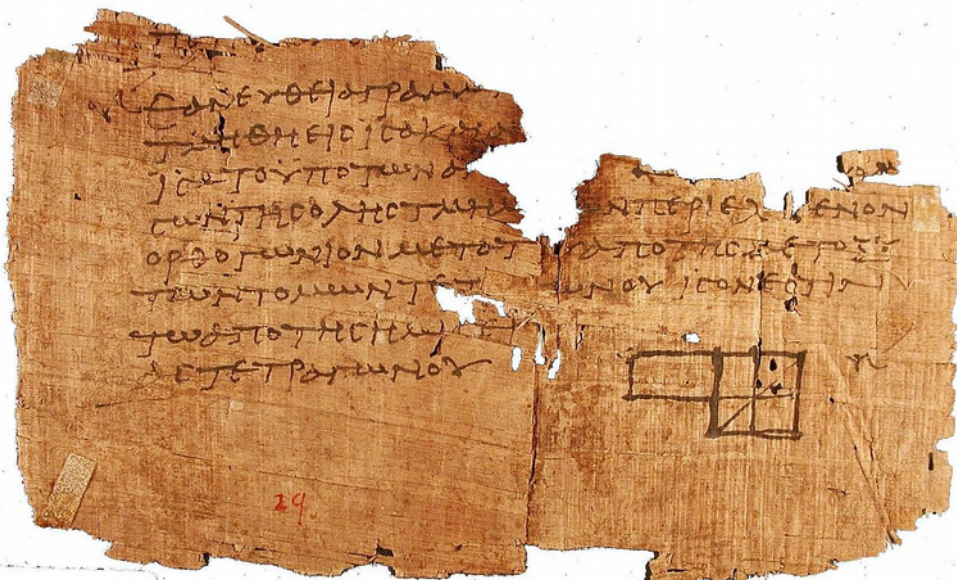 ΕΑΝΕΥΘΕΙΑΓΡΑΜΜ
ΤΜΗΘΗΕΙϹΙϹΑΚΑΙΑ
ΙϹΑΤΟΥΠΟΤΩΝΑ
ϹΩΝΤΗϹΟΛΗϹΤΜΗΜ ΩΝΠΕΡΙΕΧ ΜΕΝΟΝ
ΟΡΘΟΓΩΝΙΟΝΜΕΤΑΤ ΑΠΟΤΗϹΜΕΤΑΞΥ
ΤΩΝΤΟΜΩΝΤΕΤ ΩΝΟΥΙϹΟΝΕϹΤΙΝ
ΤΩΑΠΟΤΗϹΗΜΙϹΕΙ
ΑϹΤΕΤΡΑΓΩΝΟΥ
29